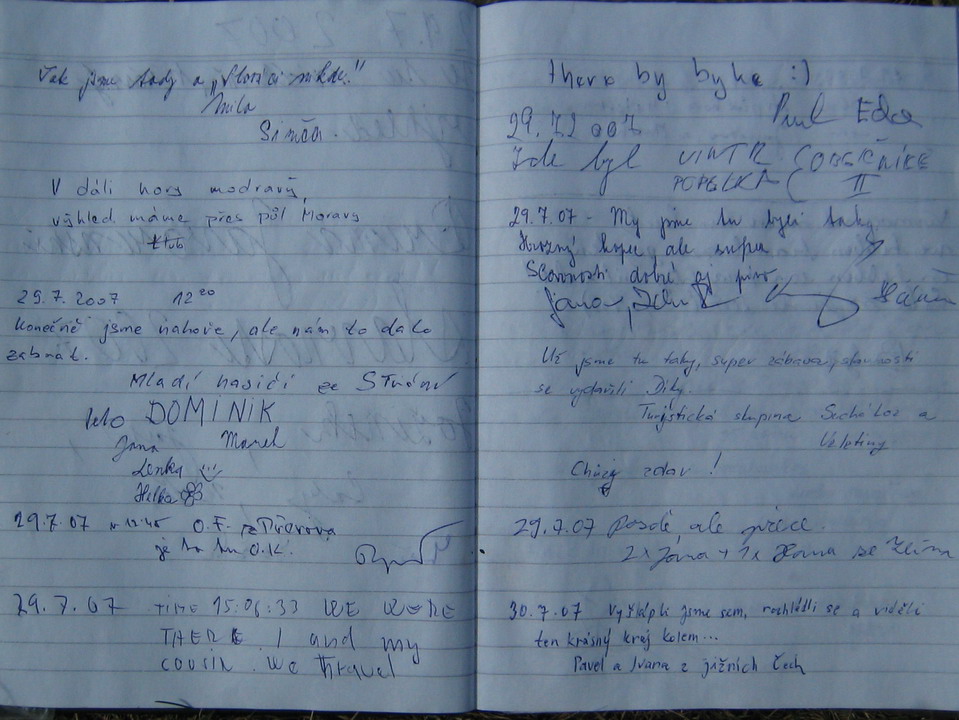 Tak jsme tady a „Slováci nikde."
Mila
V dáli hory modravý
výhled máme přes půl Moravy
29.7.2007 12 20
Konečně jsme nahoře, ale nám to dalo
zabrat.
Mladí hasiči ze
DOMINIK
Jana Marek
Lenka
Helka
29.7.07 v 12:45 O.F. z Přerova
je to tu O.K.
29.7.07 TIME 15:06:33 WE WERE
THERE I and my
cousin. We thravel
there by byke :)
Eda
29.7.2007
Zde byl VINTR
POPELKA II
29.7.07 - My jsme tu byli taky.
Hrozný kopec ale super
Slavnosti dobré aj pivo
Jana,
Už jsme tu taky, super zábava, slavnosti
se vydařili Díky.
Turistická skupina Suchá Loz a
Veletiny
Chůzy zdar!
29.7.07 Pozdě, ale přece.
2x Jana + 1x Hana ze Zlína
30.7.07 Vyšlápli jsme sem, rozhlédli se a viděli
ten krásný kraj kolem...
Pavel a Ivana z jižních Čech